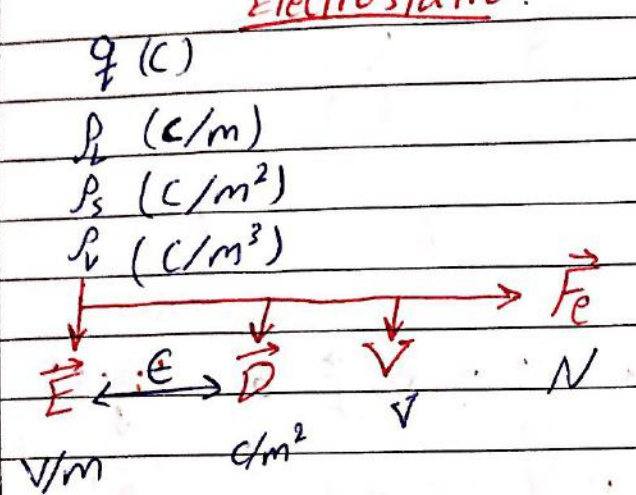 Electrostatic.
q (C)
ρL (C/m)
ρs (C/m²)
ρv (C/m³)
F⃗e
E⃗ ε D⃗ V N
V
V/m C/m²